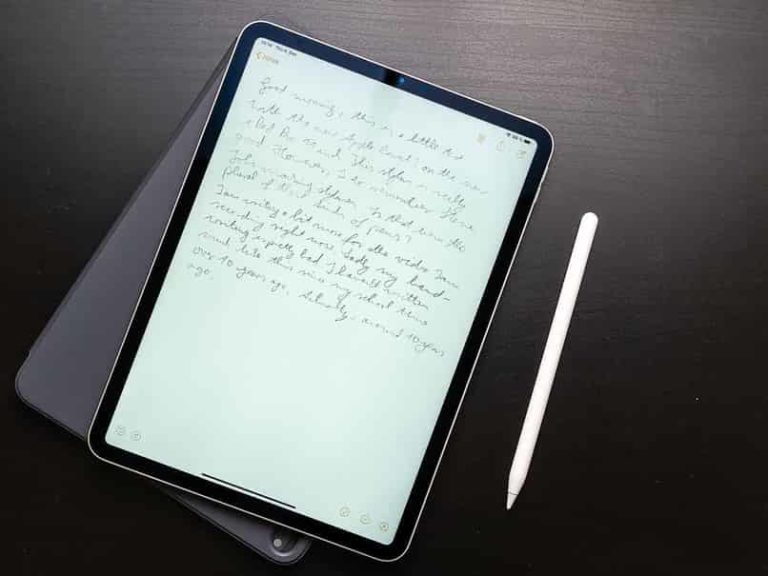 Notes
Good morning, this is a little test
with the new Apple Pencil on the new
iPad Pro and this stylus is really
good. However, I do remember Steve
Jobs mocking styluses. Is that even the
plural of these kinds of pens?
I am writing a bit more for the video I am
recording right now. Sadly my hand-
writing is pretty bad I haven't written
much like this since my school time
over 10 years ago. Actually, around 10 years
ago.